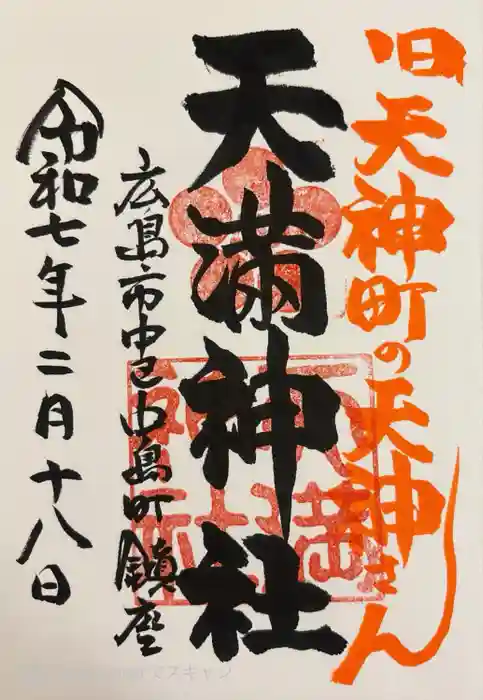 旧天神町の天神さん
天満神社
広島市中区中島町鎮座
令和七年二月十八日
天満神社